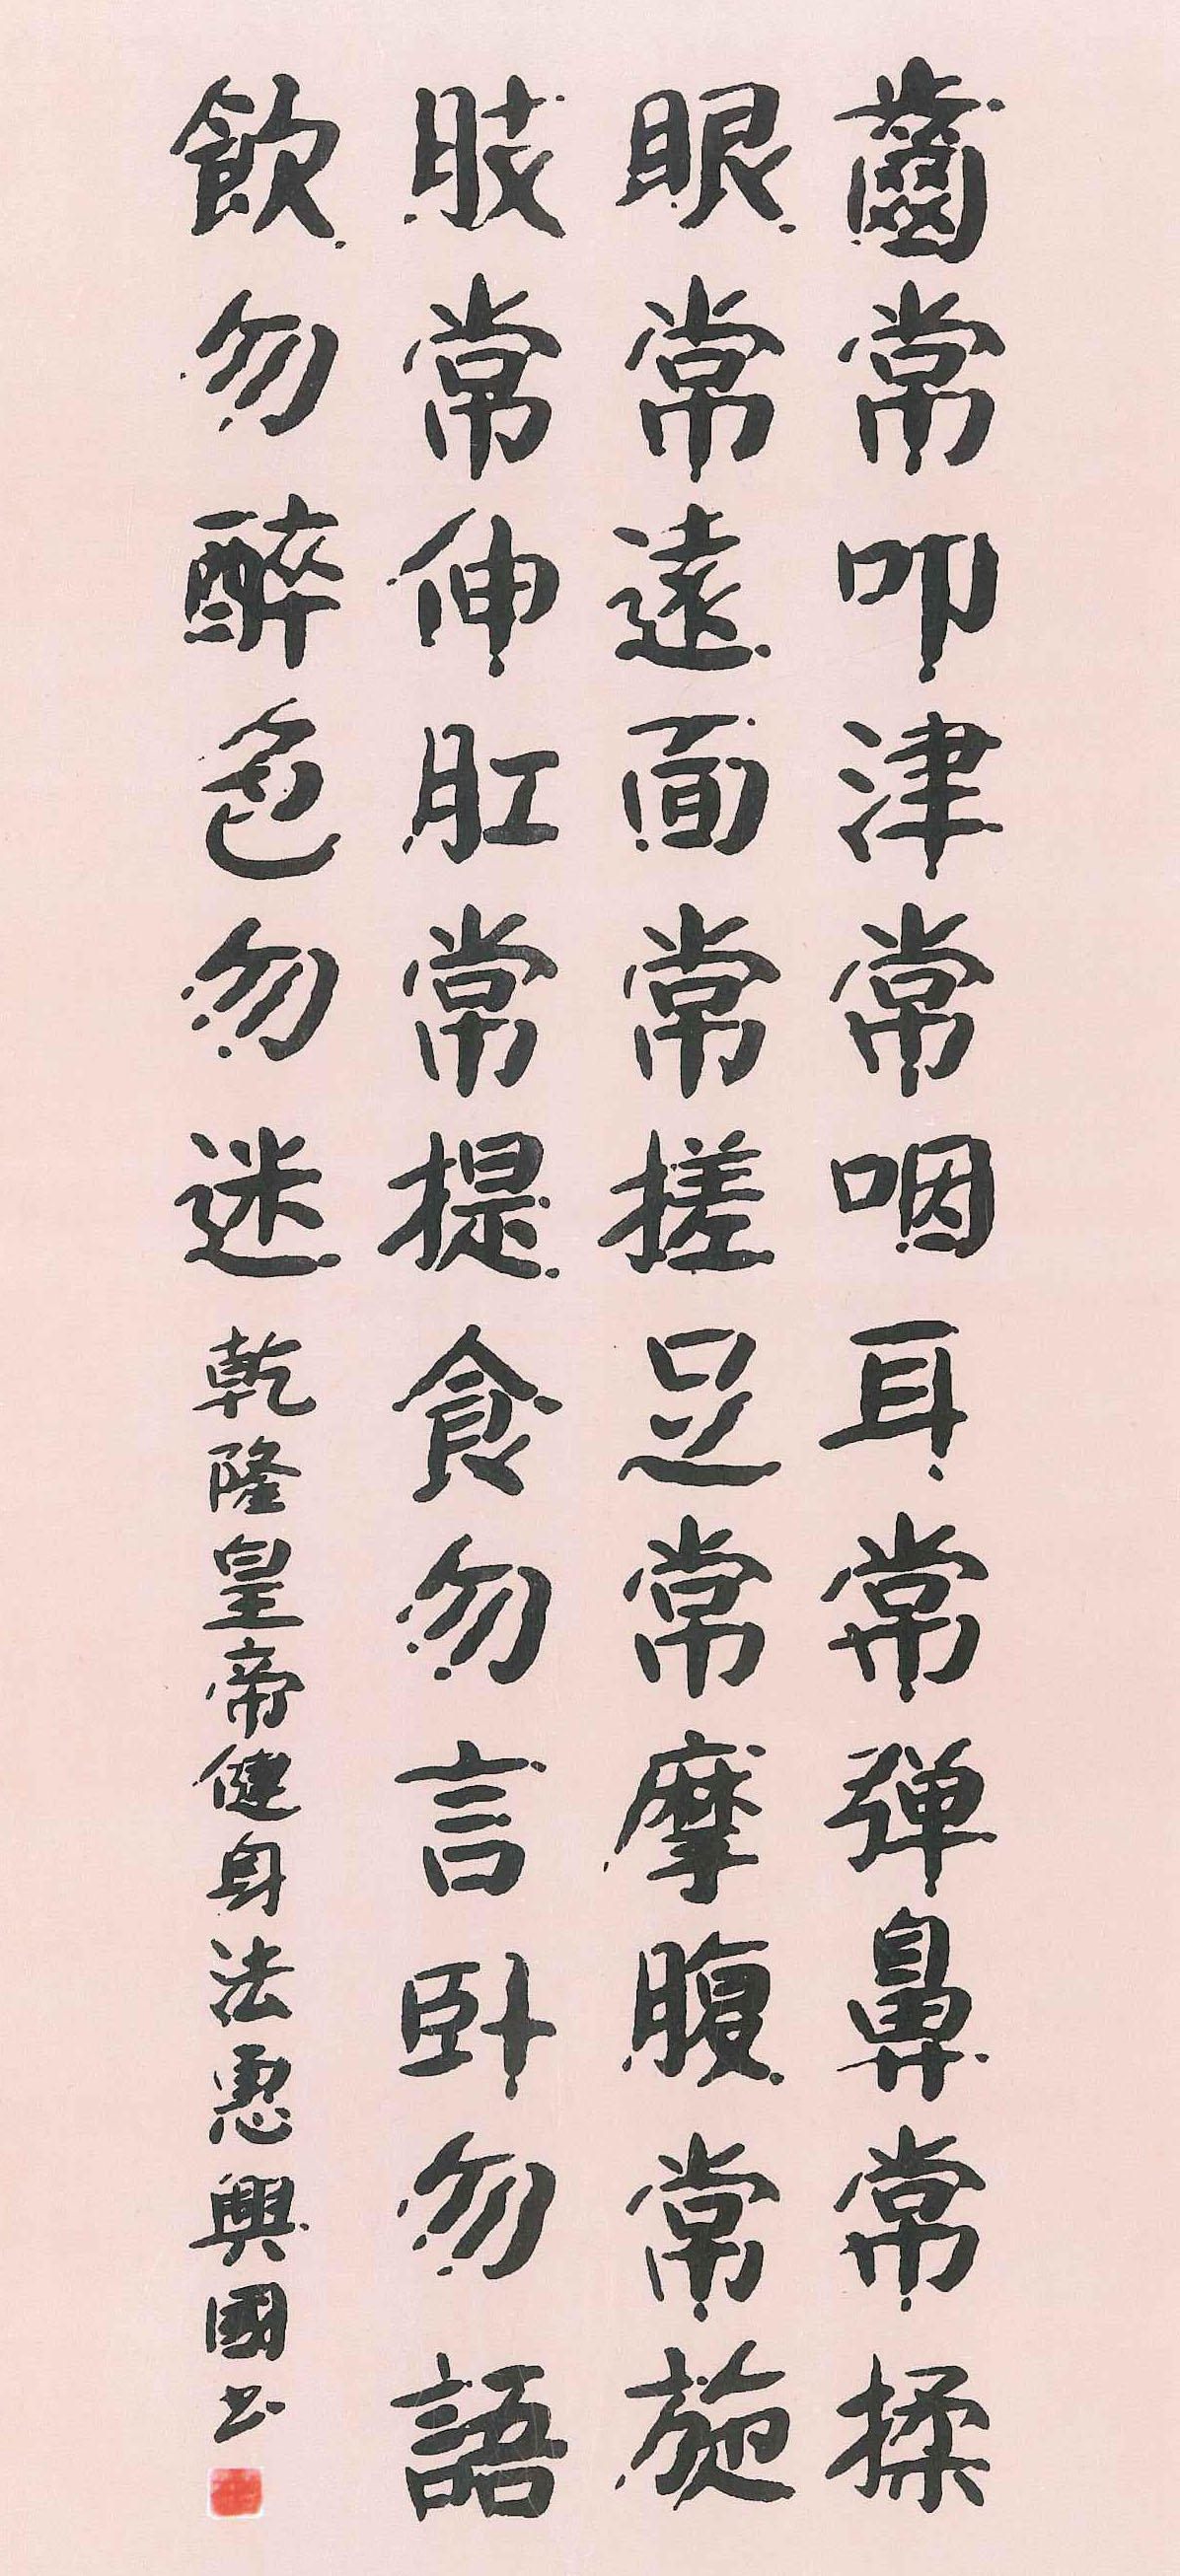 齒常叩津常咽耳常彈鼻常揉
眼常遠面常搓足常摩腹常旋
肢常伸肛常提食勿言卧勿語
飲勿醉色勿迷 乾隆皇帝健身法惠興國书